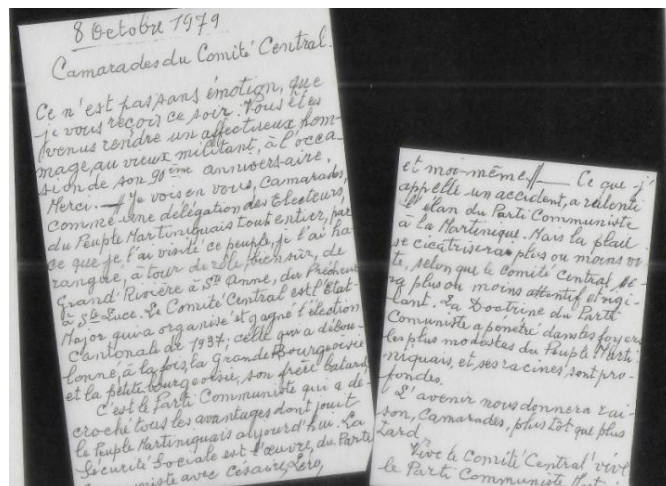 8 Octobre 1979
Camarades du Comité Central.
Ce n'est pas sans émotion, que
je vous reçois ce soir. Vous êtes
venus rendre un affectueux hom-
mage, au vieux militant, à l'occa-
sion de son 90ème anniversaire.
Merci. Je vois en vous, Camarades,
comme une délégation des Electeurs,
du Peuple Martiniquais tout entier, par
ce que je l'ai visité ce peuple, je l'ai ha-
rangué, à tour de rôle, bien sûr, de
Grand'Rivière à Ste Anne, du Prêcheur
à Ste Luce. Le Comité Central est l'Etat-
Major qui a organisé et gagné l'élection
Cantonale de 1937; celle qui a débou-
lonné, à la fois, la Grande Bourgeoisie
et la petite bourgeoisie, son frère batard.
C'est le Parti Communiste qui a dé-
croché tous les avantages dont jouit
le Peuple Martiniquais aujourd'hui. La
Sécurité Sociale est l'œuvre, du Parti
avec Césaire, Léro,
et moi-même. Ce que j'
appelle un accident, a ralenti
l'élan du Parti Communiste
à la Martinique. Mais la plaie
se cicatrisera plus ou moins vi-
te, selon que le Comité Central, se-
ra plus ou moins attentif et vigi-
lant. La Doctrine du Parti
Comuniste a penetré dans les foyers
les plus modestes du Peuple Marti-
niquais, et ses racines, sont pro-
fondes.
L'avenir nous donnera rai-
son, Camarades, plus tôt que plus
tard.
Vive le Comité Central! vive
le Parti Communiste